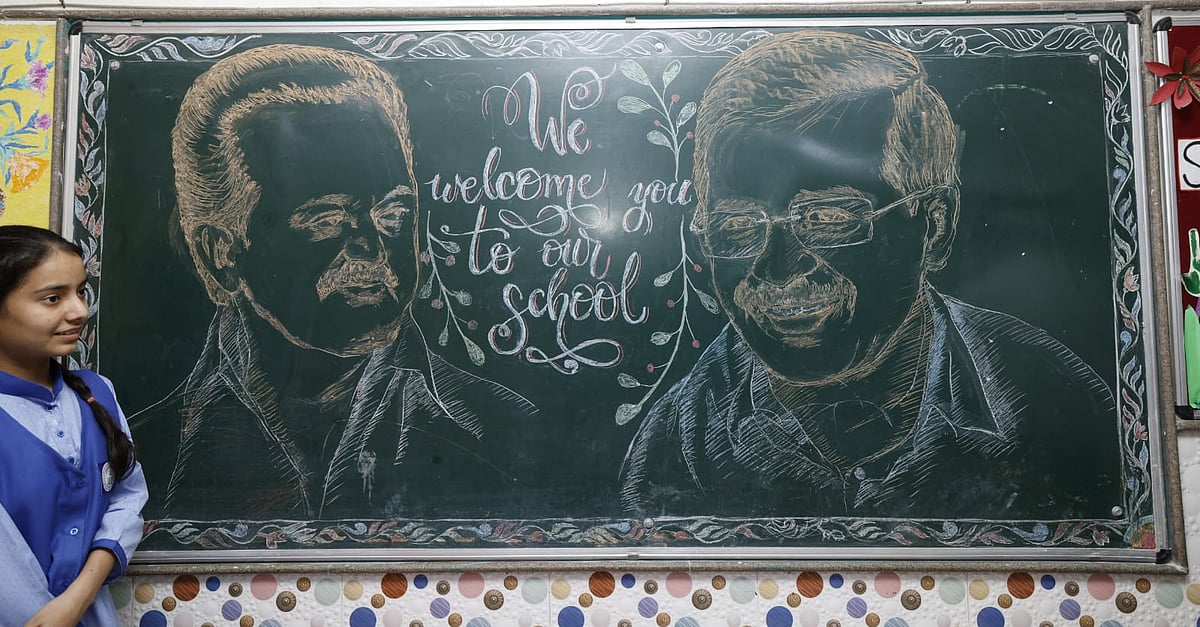 We
welcome you
to our
school
S